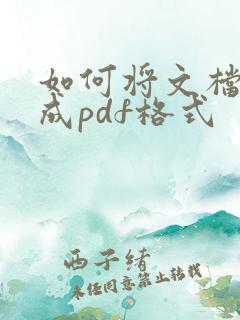 如何将文檔
成pdf格式
西子绪
未经同意禁止转载